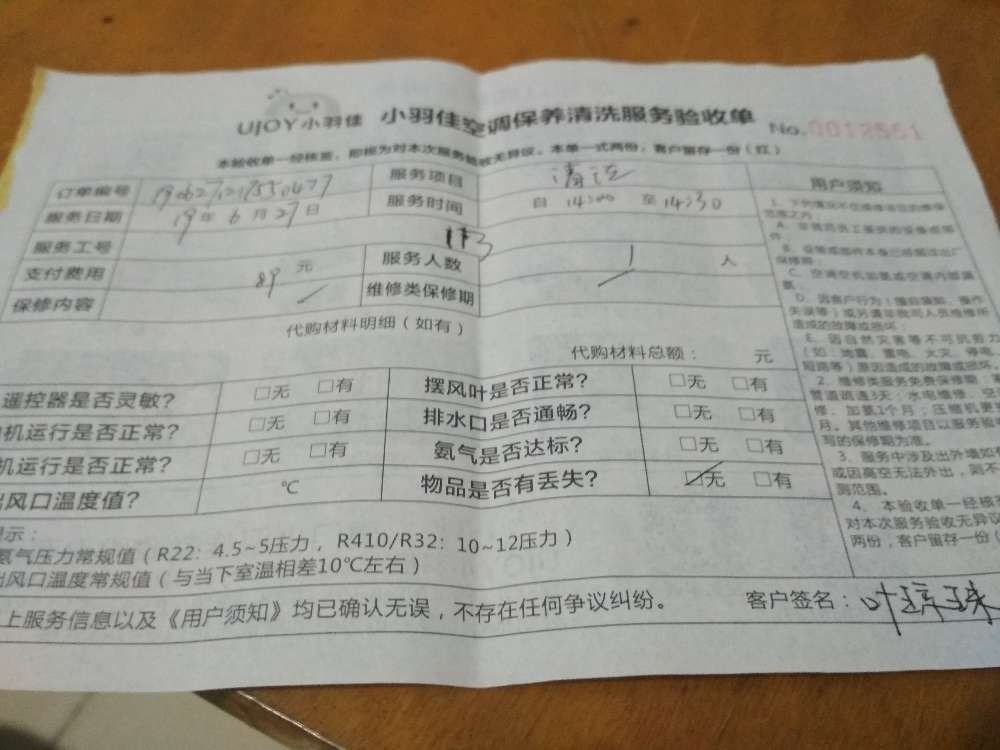 UJOY小羽佳 小羽佳空调保养清洗服务验收单 No.0012551
本验收单一经核签，即视为对本次服务验收无异议。本单一式两份，客户留存一份（红）
订单编号 服务项目 清洗
服务日期 19年6月27日 服务时间 自 14:00 至 14:30
服务工号 113
支付费用 89元 服务人数 1 人
保修内容 维修类保修期
代购材料明细（如有）
代购材料总额： 元
遥控器是否灵敏？ □无 □有 摆风叶是否正常？ □无 □有
机运行是否正常？ □无 □有 排水口是否通畅？ □无 □有
机运行是否正常？ □无 □有 氨气是否达标？ □无 □有
出风口温度值？ ℃ 物品是否有丢失？ ☑无 □有
示：
氨气压力常规值（R22：4.5~5压力，R410/R32：10~12压力）
出风口温度常规值（与当下室温相差10℃左右）
上服务信息以及《用户须知》均已确认无误，不存在任何争议纠纷。 客户签名：叶琼珠
用户须知
1、下列情况不在维修项目的质保
范围之内：
保修期；
C、空调空机加氨或空调内部漏
氨；
D、因客户行为（擅自装卸、操作
失误等）或另请非我司人员维修所
造成的故障或损坏；
E、因自然灾害等不可抗剪力
（如：地震、雷电、火灾、停电、
短路等）原因造成的故障或损坏。
2、维修类服务免费保修期：
管道疏通3天；水电维修、空
修、加氨1个月；压缩机更
月。其他维修项目以服务验收
写的保修期为准。
3、服务中涉及出外墙如有
或因高空无法外出，则不
测范围。
4、本验收单一经核
对本次服务验收无异议
两份，客户留存一份（